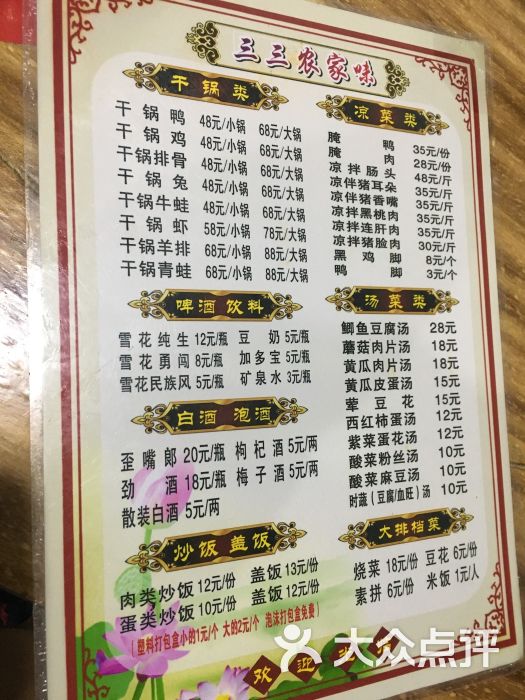 三三农家味
干锅类
干锅鸭 48元/小锅 68元/大锅
干锅鸡 48元/小锅 68元/大锅
干锅排骨 48元/小锅 68元/大锅
干锅兔 48元/小锅 68元/大锅
干锅牛蛙 48元/小锅 68元/大锅
干锅虾 58元/小锅 78元/大锅
干锅羊排 68元/小锅 88元/大锅
干锅青蛙 68元/小锅 88元/大锅
啤酒饮料
雪花纯生 12元/瓶 豆奶 5元/瓶
雪花勇闯 8元/瓶 加多宝 5元/瓶
雪花民族风 5元/瓶 矿泉水 3元/瓶
白酒 泡酒
歪嘴郎 20元/瓶 枸杞酒 5元/两
劲酒 18元/瓶 梅子酒 5元/两
散装白酒 5元/两
炒饭 盖饭
肉类炒饭 12元/份 盖饭 13元/份
蛋类炒饭 10元/份 盖饭 12元/份
(塑料打包盒小的1元/个 大的2元/个 泡沫打包盒免费)
凉菜类
腌鸭 35元/份
腌肉 28元/份
凉拌肠头 48元/斤
凉伴猪耳朵 35元/斤
凉伴猪香嘴 35元/斤
凉拌黑桃肉 35元/斤
凉拌连肝肉 35元/斤
凉拌猪脸肉 30元/斤
黑鸡脚 8元/个
鸭脚 3元/个
汤菜类
鲫鱼豆腐汤 28元
蘑菇肉片汤 18元
黄瓜肉片汤 18元
黄瓜皮蛋汤 15元
荤豆花 15元
西红柿蛋汤 12元
紫菜蛋花汤 12元
酸菜粉丝汤 10元
酸菜麻豆汤 10元
时蔬(豆腐/血旺)汤 10元
大排档菜
烧菜 18元/份 豆花 6元/份
素拼 6元/份 米饭 1元/人
欢迎
大众点评